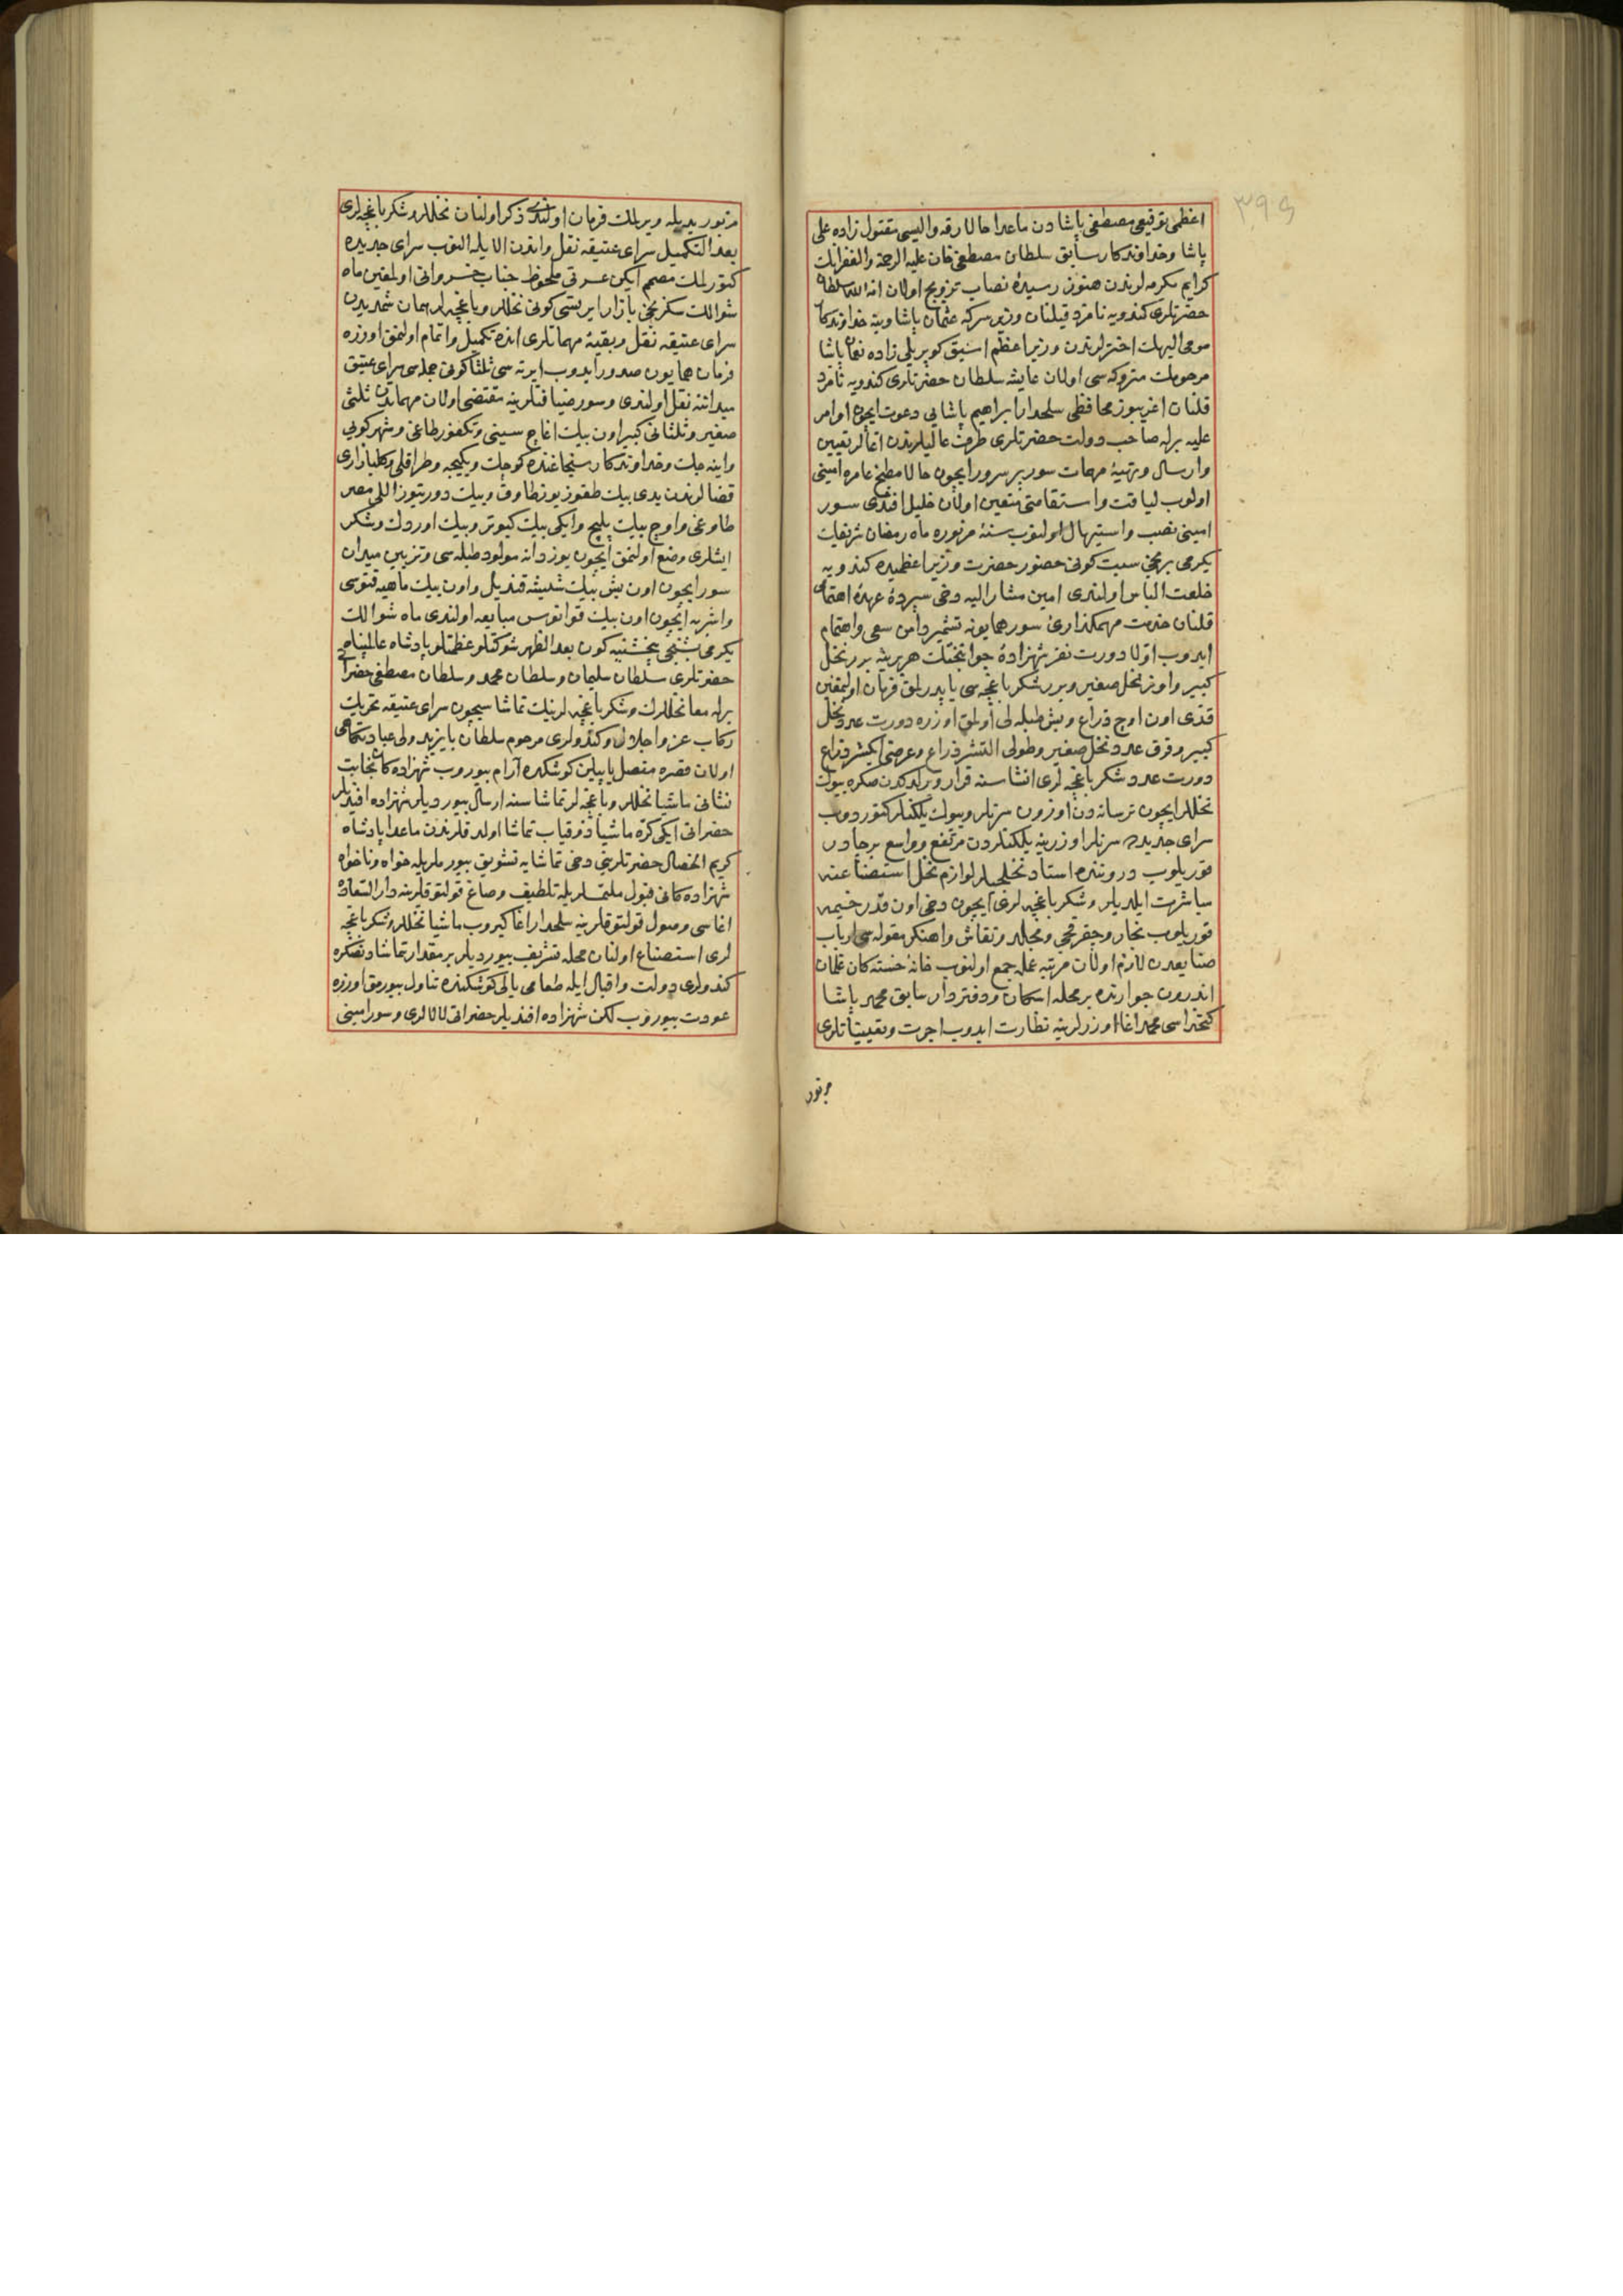 ٣٩٥
اعظمی توقیعی مصطفی پاشادن ماعدا حالا رقه والیسی مقتول زاده علی
پاشا وخداوندکار سابق سلطان مصطفی خان علیه الرحمة والغفرانك
کرایم مکرمه لرندن هنوز رسیدهٔ نصاب تزویج اولان امة الله سلطان
حضرتلری کندویه نامزد قیلنان وزیر سرکه عثمان پاشا وینه خداوندکار
مومی الیهك اختزلرندن وزیر اعظم اسبق کوپریلی زاده نعمان پاشا
مرحومك متروکه سی اولان عایشه سلطان حضرتلری کندویه نامزد
قلنان اغریبوز محافظی سلحدار ابراهیم پاشایی دعوت ایچون اوامر
علیه برله صاحب دولت حضرتلری طرف عالیلرندن اغالر تعیین
وارسال وتهیهٔ مهمات سور پر سرور ایچون حالا مطبخ عامره امینی
اولوب لیاقت واستقامتی متعین اولان خلیل افندی سور
امینی نصب واستیهال اولنوب سنهٔ مزبوره ماه رمضان شریفك
یکرمی برنجی سبت کونی حضور حضرت وزیر اعظمیده کندویه
خلعت الباس اولندی امین مشار الیه دخی سپردهٔ عهدهٔ اهتمامی
قلنان خدمت مهمکذاریٔ سور همایونه تشمیر دامن سعی واهتمام
ایدوب اولا دورت نفر شهزادهٔ جوانبختك هر برینه برر نخل
کبیر واونر نخل صغیر وبرر شکر باغچه سی یاپدرلمق فرمان اولنمغین
قدی اون اوچ ذراع وبش طبله لی اولمق اوزره دورت عدد نخل
کبیر وقرق عدد نخل صغیر وطولی التیشر ذراع وعرضی ایکیشر ذراع
دورت عدد شکر باغچه لری انشاسنه قرار ویرلدکدن صکره بیوك
نخللر ایچون ترسانه دن اوزون سرنلر وبیوك یلکنلر کتوردوب
سرای جدیده سرنلر اوزرینه یلکنلردن مرتفع وواسع بر چادر
قوریلوب دروننده استاد نخلجیلر لوازم نخل استصناعنه
مباشرت ایلدیلر وشکر باغچه لری ایچون دخی اون قدر خیمه
قوریلوب نجار وجقرقجی ومجللد ونقاش واهنکر مقوله سی ارباب
صنایعدن لازم اولان مرتبه عمله جمع اولنوب خانهٔ خسته کان غلمان
اندرون جوارنده بر محله اسکان ودفتردار سابق محمد پاشا
کتخداسی محمد اغا اوزرلرینه نظارت ایدوب اجرت وتعییناتلری
مزبور
مزبور یدیله ویرلمك فرمان اولندی ذکر اولنان نخللر وشکر باغچه لری
بعد التکمیل سرای عتیقه نقل واندن الایله النوب سرای جدیده
کتورلمك مصمم ایکن عسرتی ملحوظ جناب خسروانی اولمغین ماه
شوالك سکزنجی بازار ایرتسی کونی نخللر وباغچه لر همان شمدیدن
سرای عتیقه نقل وبقیهٔ مهماتلری انده تکمیل واتمام اولنمق اوزره
فرمان همایون صدور ایدوب ایرته سی ثلثا کونی جمله سی سرای عتیق
میداننه نقل اولندی وسور ضیافتلرینه مقتضی اولان مهماتدن ثلثی
صغیر وثلثانی کبیر اون بیك اغاج سینی وتکفور طاغی وشهر کویی
واینه جك وخداوندکار سنجاغنده کوجك ویکیجه وطراقلی وکلبازاری
قضالرندن یدی بیك طقوز یوز طاوق وبیك دورتیوز اللی مصر
طاوغی واوچ بیك پلیچ وایکی بیك کبوتر وبیك اوردك وشکر
ایشلری وضع اولنمق ایچون یوز دانه مولود طبله سی وتزیین میدان
سور ایچون اون بش بیك شیشه قندیل واون بیك ماهیه قنوسی
واشربه ایچون اون بیك قوانوس مبایعه اولندی ماه شوالك
یکرمی بشنجی پنجشنبه کون بعد الظهر شوکتلو عظمتلو پادشاه عالمپناه
حضرتلری سلطان سلیمان وسلطان محمد وسلطان مصطفی حضراتی
برله معا نخللرك وشکر باغچه لرینك تماشاسیچون سرای عتیقه تحریك
رکاب عز واجلال وکندولری مرحوم سلطان بایزید ولی عبادتکاهی
اولان قصره متصل یاپیلین کوشکده آرام بیوروب شهزاده کان نجابت
نشانی ماشیا نخللر وباغچه لر تماشاسنه ارسال بیوردیلر شهزاده افندیلر
حضراتی ایکی کره ماشیا ذوقیاب تماشا اولدقلرندن ماعدا پادشاه
کریم الخصال حضرتلرینی دخی تماشایه تشویق بیورملریله خواه وناخواه
شهزاده کانی قبول ملتمسلریله تلطیف وصاغ قولتوقلرینه دار السعاده
اغاسی وصول قولتوقلرینه سلحدار اغا کیروب ماشیا نخللر وشکر باغچه
لری استصناع اولنان محله تشریف بیوردیلر بر مقدار تماشادنصکره
کندولری دولت واقبال ایله طعامی یالی کوشکنده تناول بیورمق اوزره
عودت بیوروب لکن شهزاده افندیلر حضراتی لالالری وسور امینی